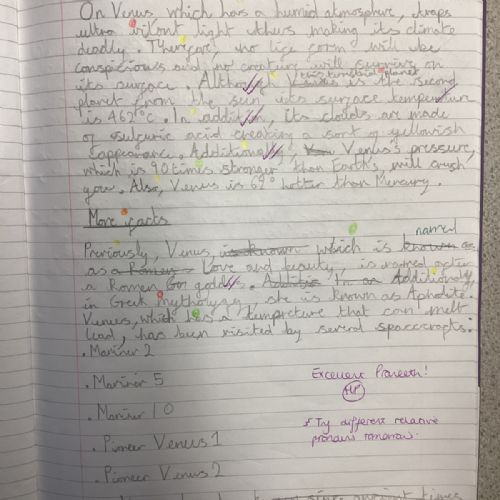 On Venus which has a humid atmosphere, traps
ultra vilont light others making its climate
deadly. Therfore, no lige corm will be
conspicious and no creature will survive on
this terrestrial planet
its surface. Although Venus is the second
planet from the sun its surface temperature
is 462°c. In addition, its clouds are made
of sulguric acid creating a sort of yellowish
appearance. Additionally, Venus's pressure,
which is 90 times stronger than Earth's, will crush
you. Also, Venus is 62° hotter than Mercury.
More facts
named
Previously, Venus, is known which is known as
as a Roman Love and beauty, is named after
a Roman God goddess. In Additionaly,
in Greek Mythology, she is known as Aphodite.
Venus, which has a tempreture that can melt
lead, has been visited by several spacecrafts:
. Mariner 2
. Mariner 5
. Mariner 10
. Pioneer Venus 1
. Pioneer Venus 2
Excellent Praneeth!
HP
* Try different relative
pronouns tomorrow.